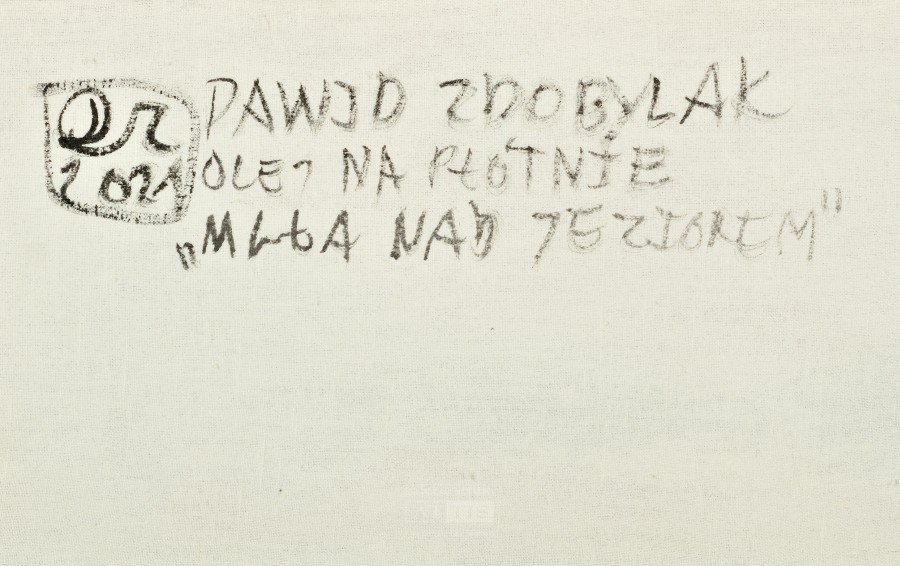 DAWID ZDOBYLAK
2021 OLEJ NA PŁÓTNIE
„MGŁA NAD JEZIOREM"